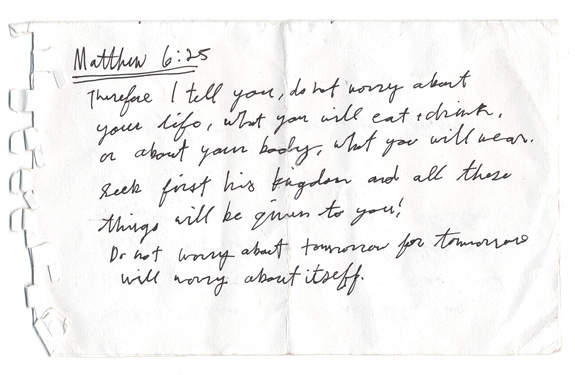 Matthew 6:25
Therefore I tell you, do not worry about
your life, what you will eat + drink,
or about your body, what you will wear.
Seek first his kingdom and all these
things will be given to you!
Do not worry about tomorrow for tomorrow
will worry about itself.